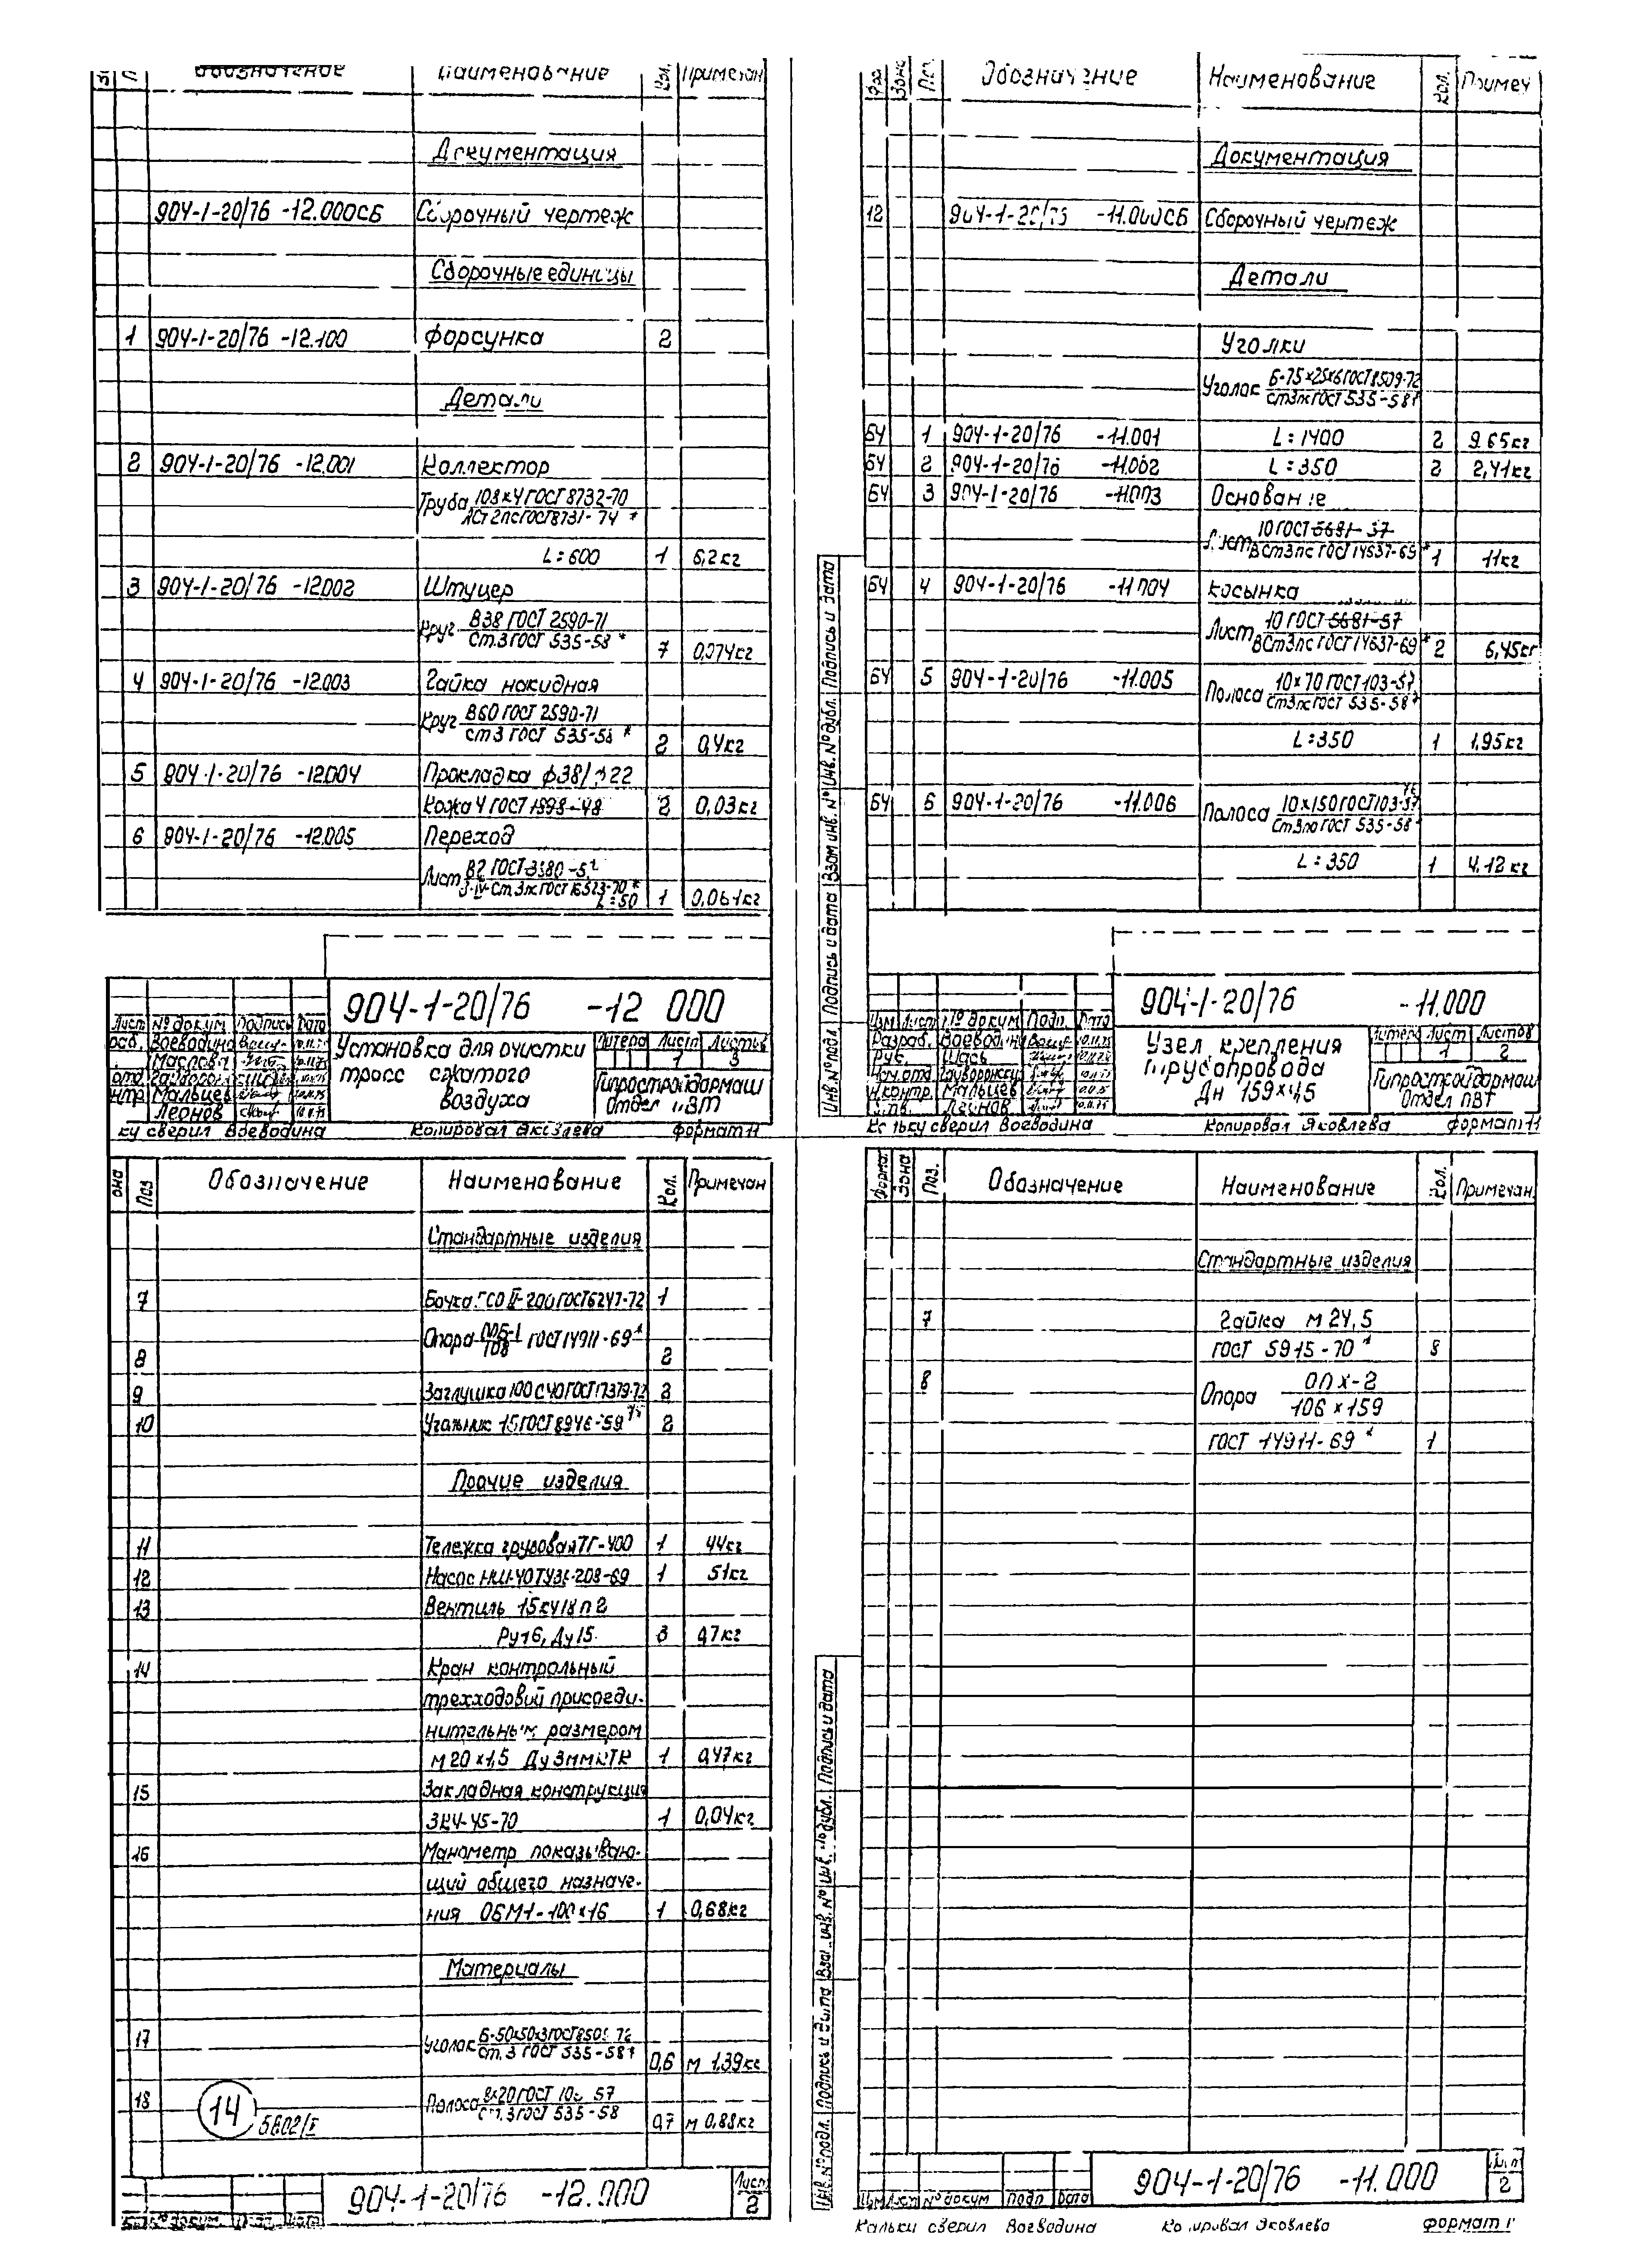 Обозначение Наименование Кол. Примечан
Документация
904-1-20/76 -12.000СБ Сборочный чертеж
Сборочные единицы
1 904-1-20/76 -12.100 Форсунка 2
Детали
2 904-1-20/76 -12.001 Коллектор
Труба 108×4 ГОСТ 8732-70
ГОСТ 8731-74 *
L=600 1 6,2кг
3 904-1-20/76 -12.002 Штуцер
Круг В38 ГОСТ 2590-71
Ст.3 ГОСТ 535-58 *
7 0,074кг
4 904-1-20/76 -12.003 Гайка накидная
Круг В60 ГОСТ 2590-71
Ст3 ГОСТ 535-58 *
2 0,4кг
5 904-1-20/76 -12.004 Прокладка ф38/ф22
Кожа 4 ГОСТ 1898-48 2 0,03кг
6 904-1-20/76 -12.005 Переход
Лист В2 ГОСТ 3680-57
Ст.3пс ГОСТ 16523-70 *
L=50 1
904-1-20/76 -12 000
Лист № докум Подпись Дата
Воеводина
Маслова
Мальцев
Леонов
Установка для очистки
трасс сжатого
воздуха
Литера Лист Листов
1 3
Гипростройдормаш
Отдел ПВТ
ку сверил Воеводина Копировал Яковлева Формат 11
Поз. Обозначение Наименование Кол. Примечан
Стандартные изделия
7 Бочка ГСО II-200 ГОСТ 6247-72 1
Опора ГОСТ 14911-69 *
8 2
9 Заглушка 100 С40 ГОСТ 17379-72 2
10 Угольник 15 ГОСТ 8946-59 2
Прочие изделия
11 Тележка грузовая ТГ-400 1 44кг
12 Насос 1 51кг
13 Вентиль 15кч18п2
Ру16, Ду15 3 0,7кг
14 Кран контрольный
трехходовий присоеди-
нительным размером
М20×1,5 Ду3мм 1 0,47кг
15 Закладная конструкция
ЗК4-45-70 1 0,04кг
16 Манометр показываю-
щий общего назначе-
ния ОБМ1-100×16 1 0,68кг
Материалы
17 Уголок Б-50×50×3 ГОСТ 8509-72
Ст.3 ГОСТ 535-58*
0,6 м 1,39кг
18 Полоса 8×20 ГОСТ 103-57
Ст.3 ГОСТ 535-58
0,7 м 0,88кг
14 5802/I
904-1-20/76 -12.000 Лист 2
№ докум. Подп. Дата
Форм. Зона Поз. Обозначение Наименование Кол. Примеч
Документация
12 904-1-20/76 -11.000СБ Сборочный чертеж
Детали
Уголки
Уголок Б-75×25×6 ГОСТ 8509-72
Ст3пс ГОСТ 535-58*
БЧ 1 904-1-20/76 -11.001 L=1400 2 9.65кг
БЧ 2 904-1-20/76 -11.002 L=350 2 2,41кг
БЧ 3 904-1-20/76 -11.003 Основание
Лист 10 ГОСТ 5681-57
ВСт3пс ГОСТ 14637-69 * 1 11кг
БЧ 4 904-1-20/76 -11.004 Косынка
Лист 10 ГОСТ 5681-57
ВСт3пс ГОСТ 14637-69 * 2 6,45кг
БЧ 5 904-1-20/76 -11.005 Полоса 10×70 ГОСТ 103-57
Ст3пс ГОСТ 535-58*
L=350 1 1,95кг
БЧ 6 904-1-20/76 -11.006 Полоса 10×150 ГОСТ 103-57
Ст3пс ГОСТ 535-58
L=350 1 4.12кг
Инв.№ подл. Подпись и дата Взам инв. № Инв. № дубл. Подпись и дата
904-1-20/76 -11.000
Изм Лист № докум Подп. Дата
Разраб. Воеводина
Рук. Шась
Н.контр. Мальцев
Утв. Леонов
Узел крепления
трубопровода
Дн 159×4,5
Литера Лист Листов
1 2
Гипростройдормаш
Отдел ПВТ
Кальку сверил Воеводина Копировал Яковлева Формат 11
Формат Зона Поз. Обозначение Наименование Кол. Примечан.
Стандартные изделия
7 Гайка М24,5
ГОСТ 5915-70 * 8
8 Опора ОПХ-2
106×159
ГОСТ 14911-69 * 1
Инв.№ подл. Подпись и дата Взам. инв. № Инв. № дубл. Подпись и дата
904-1-20/76 -11.000 Лист 2
Изм Лист № докум Подп Дата
Кальку сверил Воеводина Копировал Яковлева Формат 11